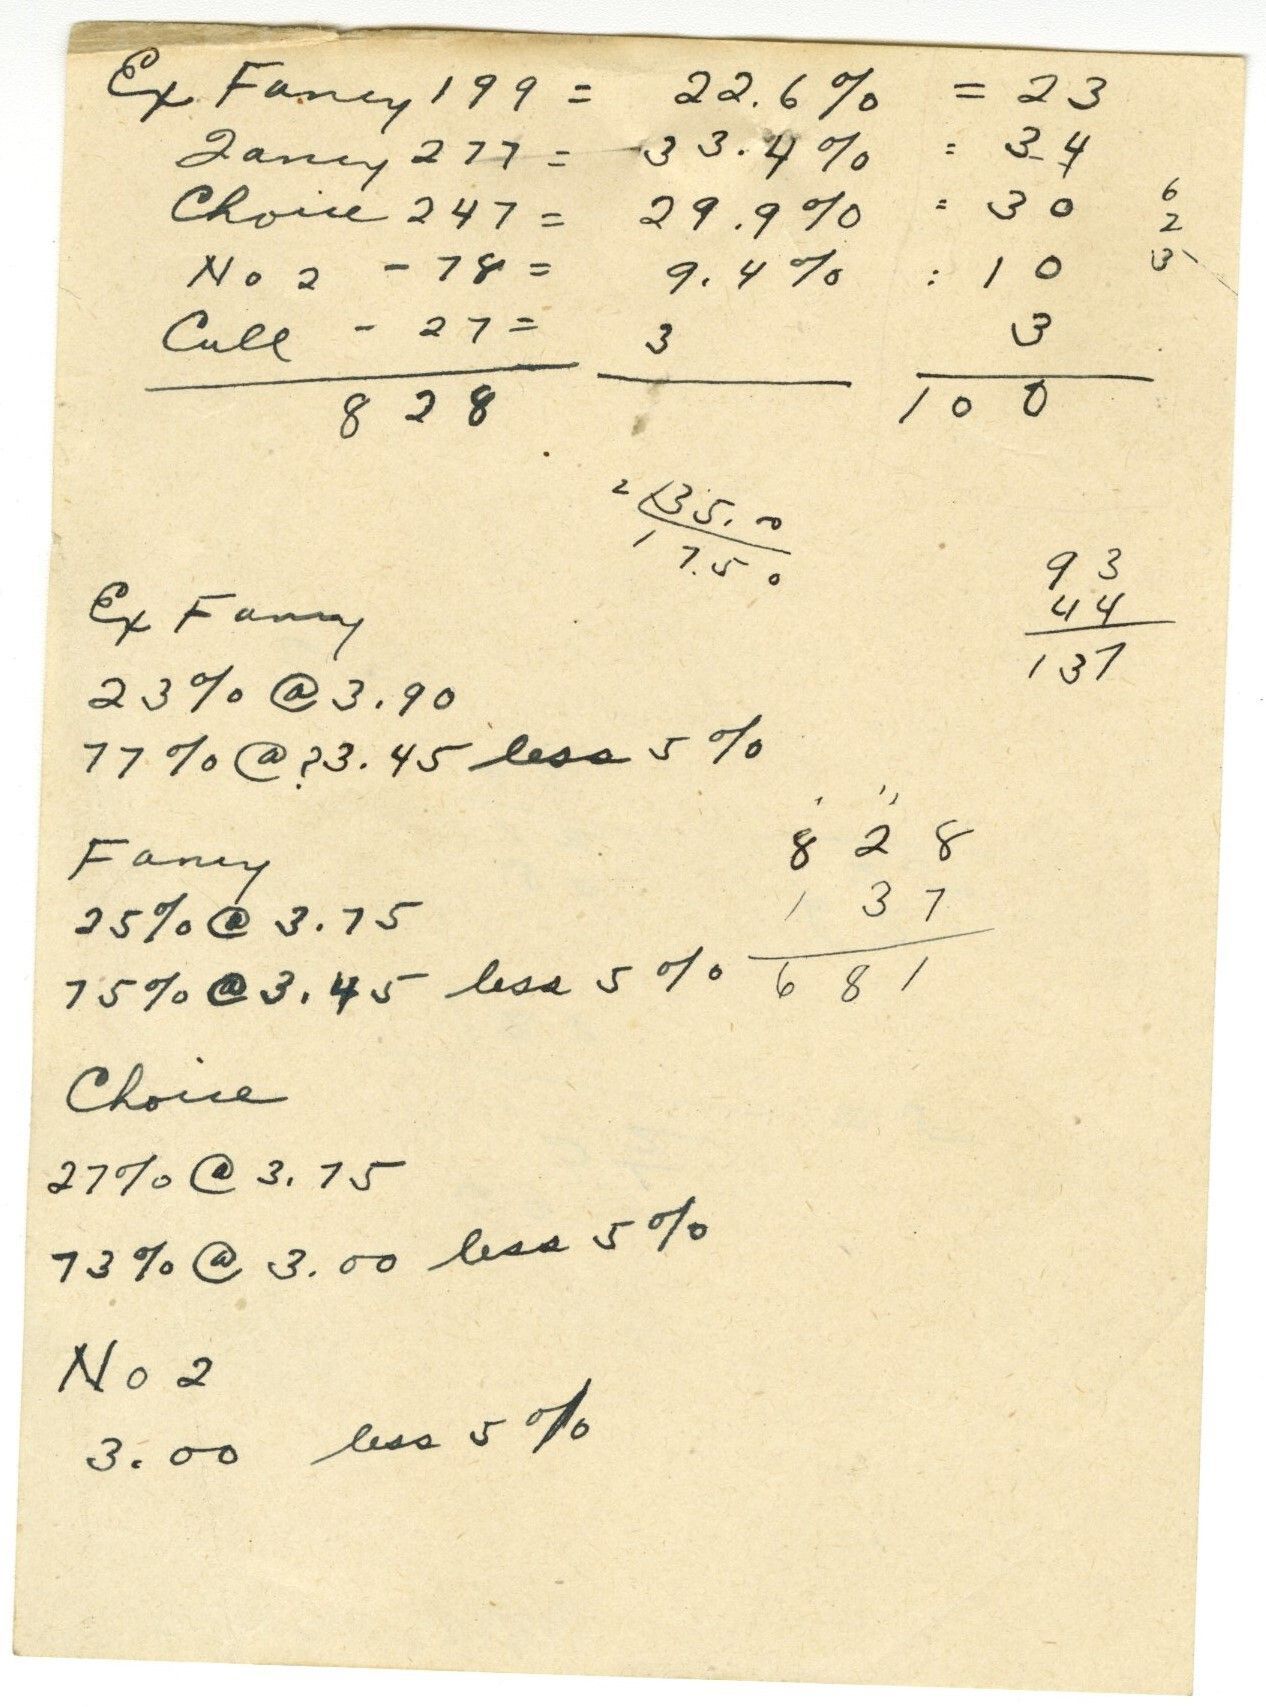 Ex Fancy 199 = 22.6% = 23
Fancy 277 = 33.4% : 34
Choice 247 = 29.9% : 30
6
2
3
No 2 - 78 = 9.4% : 10
Cull - 27 = 3 3
828 100
2 35.00
17.50
93
44
137
Ex Fancy
23% @ 3.90
77% @ ?3.45 less 5%
828
137
681
Fancy
25% @ 3.75
75% @ 3.45 less 5%
Choice
27% @ 3.75
73% @ 3.00 less 5%
No 2
3.00 less 5%